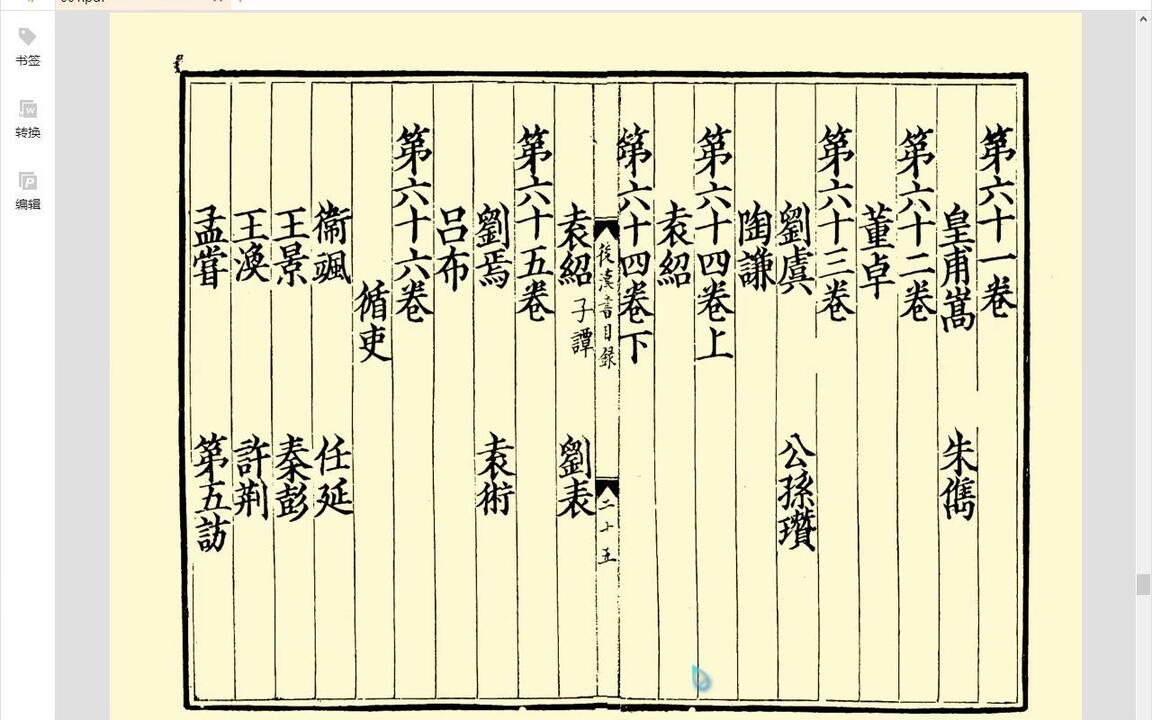 书签
转换
编辑
第六十一卷
皇甫嵩 朱儁
第六十二卷
董卓
第六十三卷
劉虞 公孫瓚
陶謙
第六十四卷上
袁紹
第六十四卷下
後漢書目録 二十五
袁紹 子譚 劉表
第六十五卷
劉焉 袁術
呂布
第六十六卷
循吏
衞颯 任延
王景 秦彭
王渙 許荆
孟嘗 第五訪